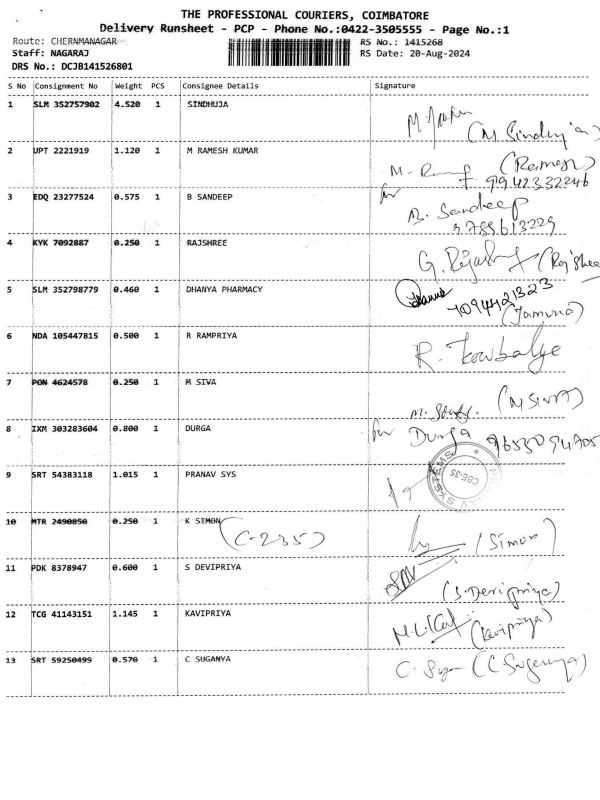 THE PROFESSIONAL COURIERS, COIMBATORE
Delivery Runsheet - PCP - Phone No.:0422-3505555 - Page No.:1
Route: CHERNMANAGAR RS No.: 1415268
Staff: NAGARAJ RS Date: 20-Aug-2024
DRS No.: DCJB141526801
S No Consignment No Weight PCS Consignee Details Signature
1 SLM 352757902 4.520 1 SINDHUJA
(M. Sindhuja)
2 UPT 2221919 1.120 1 M RAMESH KUMAR M. (Ramesh)
9942332246
3 EDQ 23277524 0.575 1 B SANDEEP for B. Sandeep
9789613229
4 KYK 7092887 0.250 1 RAJSHREE G. (Rajshree
5 SLM 352798779 0.460 1 DHANYA PHARMACY
7094421323
(Jamuna)
6 NDA 105447815 0.500 1 R RAMPRIYA R.
7 PON 4624578 0.250 1 M SIVA M. (M SIVA)
8 IXM 303283604 0.800 1 DURGA for Durga 9655094705
9 SRT 54383118 1.015 1 PRANAV SYS
SYSTEMS CBE-35
10 MTR 2490850 0.250 1 K SIMON (C-235) (Simon)
11 PDK 8378947 0.600 1 S DEVIPRIYA
(S. Devipriya)
12 TCG 41143151 1.145 1 KAVIPRIYA (Kavipriya)
13 SRT 59250499 0.570 1 C SUGANYA C. (C Suganya)